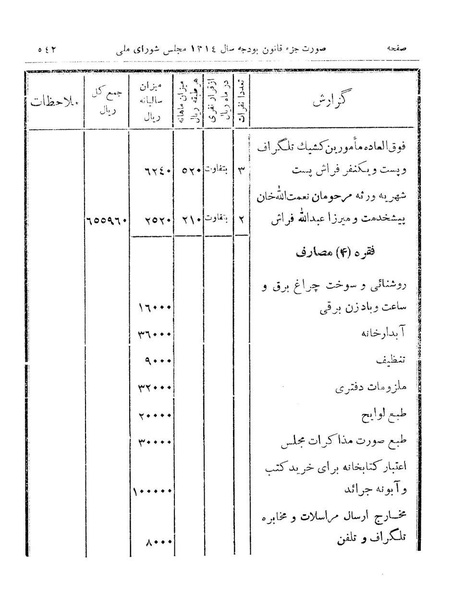 صفحه صورت جزء قانون بودجه سال ۱۳۱۴ مجلس شورای ملی ۵۴۲
گزارش تعداد نفرات از قرار نفری در ماه ریال میزان ماهانه هر طبقه ریال میزان سالیانه ریال جمع کل ریال ملاحظات
فوق العاده مأمورین کشیک تلگراف
و پست و یکنفر فراش پست ۳ بتفاوت ۵۲۰ ۶۲۴۰
شهریه ورثه مرحومان نعمت الله خان
پیشخدمت و میرزا عبدالله فراش ۲ بتفاوت ۲۱۰ ۲۵۲۰ ۶۵۵۹۶۰
فقره (۴) مصارف
روشنائی و سوخت چراغ برق و
ساعت و بادزن برقی ۱۶۰۰۰
آبدارخانه ۳۶۰۰۰
تنظیف ۹۰۰۰
ملزومات دفتری ۳۲۰۰۰
طبع لوایح ۲۰۰۰۰
طبع صورت مذاکرات مجلس ۳۰۰۰۰
اعتبار کتابخانه برای خرید کتب
و آبونه جرائد ۱۰۰۰۰۰
مخارج ارسال مراسلات و مخابره
تلگراف و تلفن ۸۰۰۰